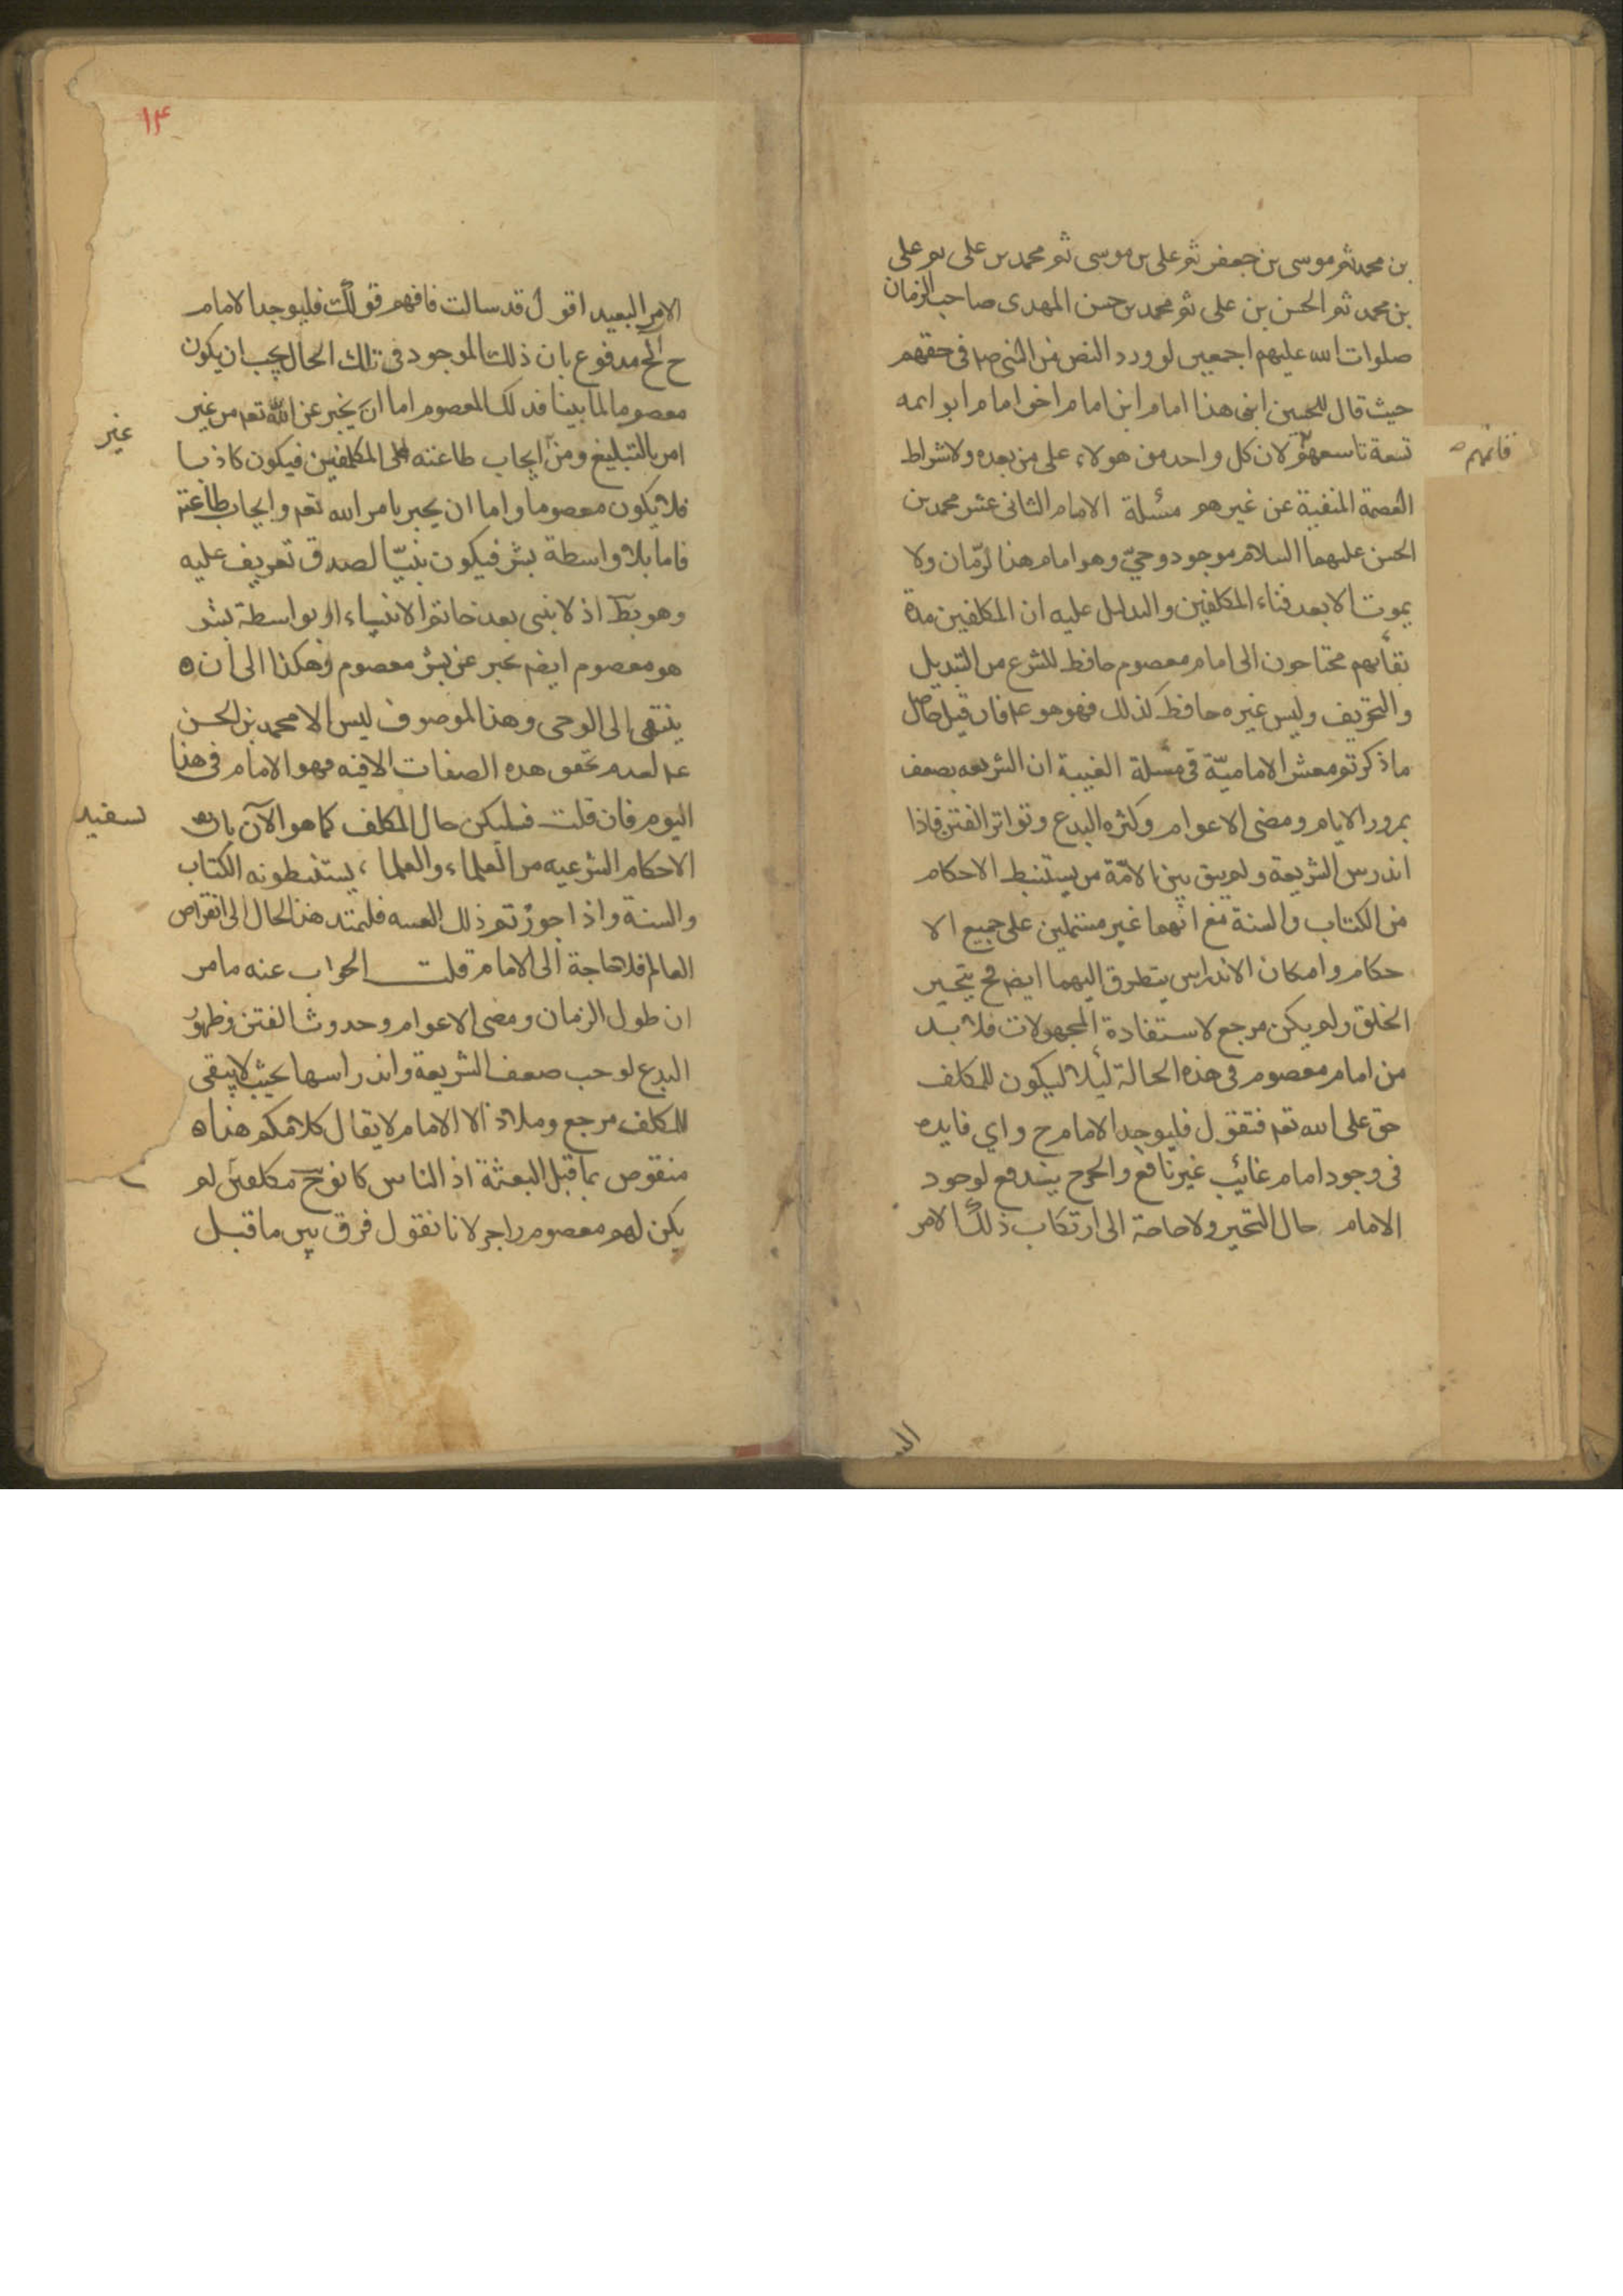 بن محمد ثم موسى بن جعفر ثم على بن موسى ثم محمد بن على ثم على
بن محمد ثم الحسن بن على ثم محمد بن حسن المهدى صاحب الزمان
صلوات الله عليهم اجمعين لورود النص من النبى صلعم فى حقهم
حيث قال للحسين ابنى هذا امام ابن امام اخو امام ابو ائمه
تسعة تاسعهم لان كل واحد من هولاء على من بعده ولاشراط
قائمهم
العصمة المنفية عن غيرهم مسئلة الامام الثانى عشر محمد بن
الحسن عليهما السلام موجود وحىّ وهو امام هذا الزّمان ولا
يموت الا بعد فناء المكلفين والدليل عليه ان المكلفين مدة
بقائهم محتاجون الى امام معصوم حافظ للشرع من التبديل
والتحريف وليس غيره حافظ كذلك فهو هو ع م فان قيل حاصل
ماذكرتم معشر الاماميّة فى مسئلة الغيبة ان الشريعه يضعف
بمرور الايام ومضى الاعوام وكثره البدع وتواتر الفتن فاذا
اندرس الشريعة ولم يبق بين الامّة من يستنبط الاحكام
من الكتاب والسنة مع انهما غير مشتملين على جميع الا
حكام وامكان الاندراس يتطرق اليهما ايضا فح يتحير
الخلق ولم يكن مرجع لاستفادة المجهولات فلا بد
من امام معصوم فى هذه الحالة ليلا ليكون للمكلف
حق على الله تعم فنقول فليوجد الامام ح واي فايده
فى وجود امام غائب غير نافع والحرج يندفع لوجود
الامام حال التحير ولا حاجة الى ارتكاب ذلك الامر
الب
١٤
الامر البعيد اقول قد سالت فافهم قولك فليوجد الامام
ح الخ مدفوع بان ذلك الموجود فى تلك الحال يجب ان يكون
معصوما لما بينا فذلك المعصوم اما ان يخبر عن الله تعم من غير
غير
امر بالتبليغ ومن ايجاب طاعته على المكلفين فيكون كاذبا
فلا يكون معصوما واما ان يخبر بامر الله تعم وايجاب طاعته
فاما بلا واسطة بشر فيكون نبيّا لصدق تعريف عليه
وهو بط اذ لا نبى بعد خاتم الانبياء او بواسطة بشر
هو معصوم ايضم مخبر عن بشر معصوم وهكذا الى ان
ينتهى الى الوحى وهذا الموصوف ليس الا محمد بن الحسن
ع م لعدم تحقق هذه الصفات الا فيه فهو الامام فى هذا
اليوم فان قلت فليكن حال المكلف كما هو الآن بان
سفيد
الاحكام الشرعيه من العلماء والعلماء يستنبطونه الكتاب
والسنة واذا جوزتم ذلك الغيبه فليمتد هذا الحال الى انقراض
العالم فلا حاجة الى الامام قلت الجواب عنه ما مر
ان طول الزمان ومضى الاعوام وحدوث الفتن وظهور
البدع لوجب ضعف الشريعة واندراسها بحيث لا يبقى
للمكلف مرجع وملاذ الا الامام لا يقال كلامكم هذا
منقوص بما قبل البعثة اذ الناس كانوا ح مكلفين لم
يكن لهم معصوم راجر لانا نقول فرق بين ما قبل